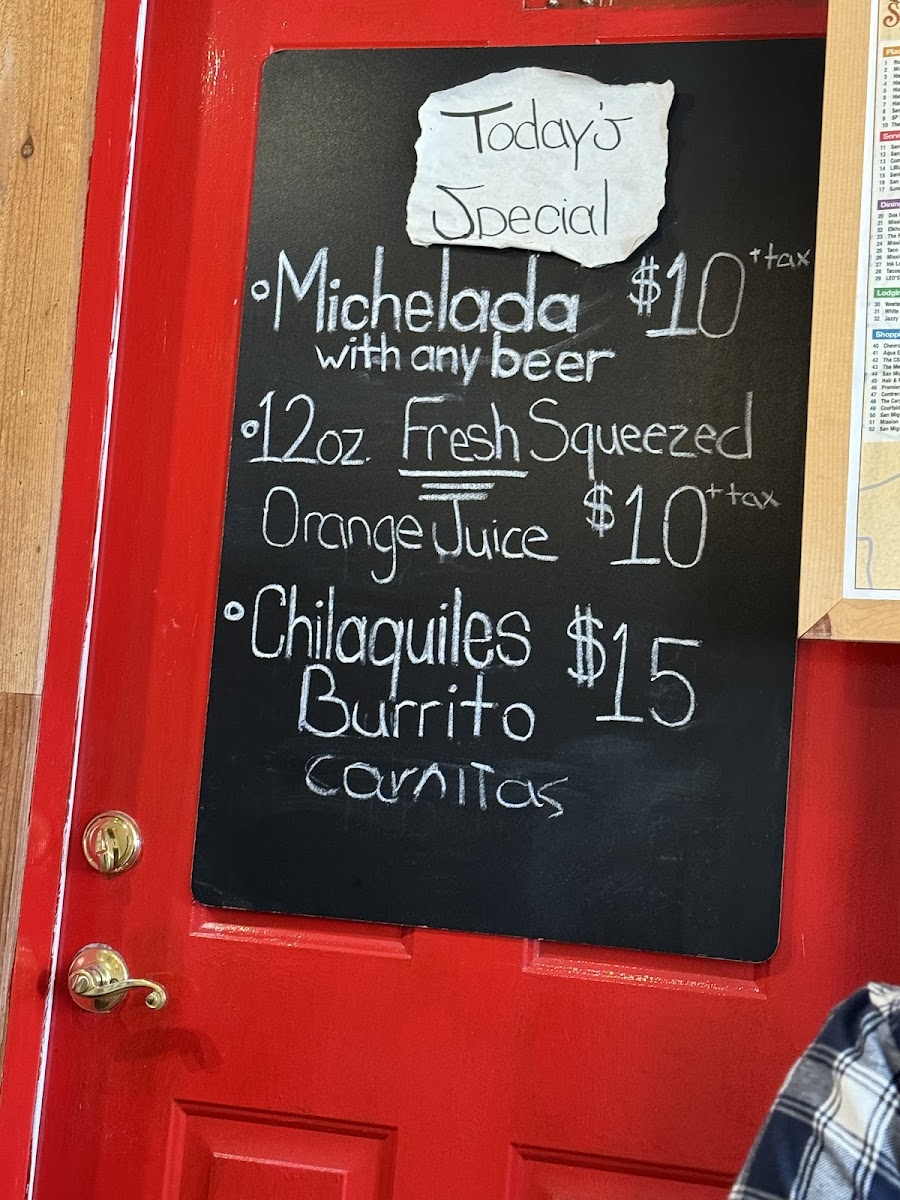 Today's
Special
•Michelada $10 +tax
with any beer
•12oz. Fresh Squeezed
Orange Juice $10 +tax
•Chilaquiles $15
Burrito
carnitas